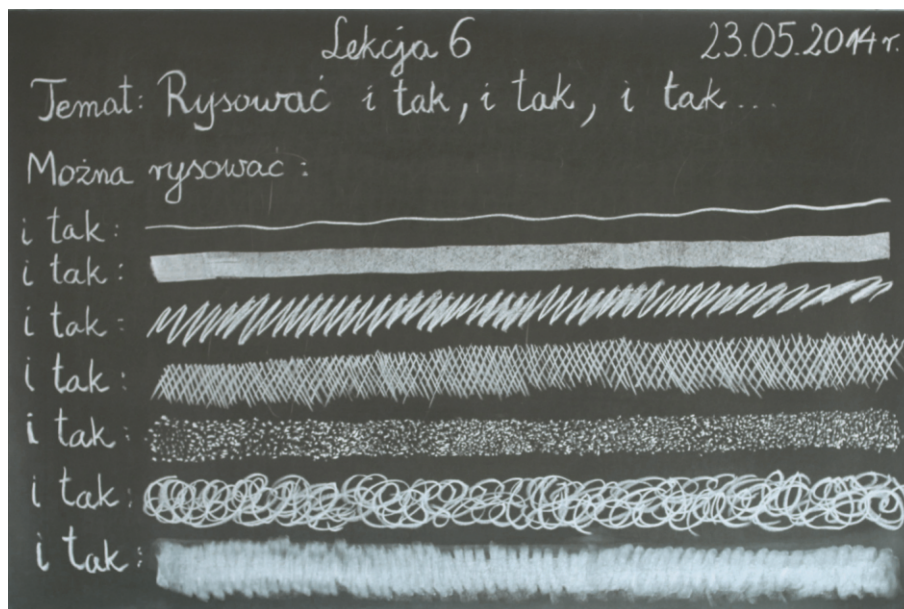 Lekcja 6 23.05.2014 r.
Temat: Rysować i tak, i tak, i tak...
Można rysować:
i tak:
i tak:
i tak:
i tak:
i tak:
i tak:
i tak: